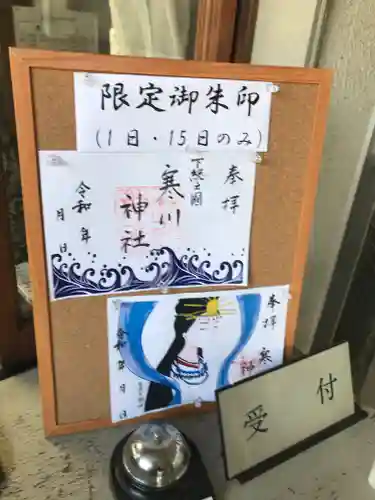 限定御朱印
(1日・15日のみ)
奉拝
下総之国
寒川
神社
令和 年
月 日
奉拝
寒
令和 年 月 日
受付